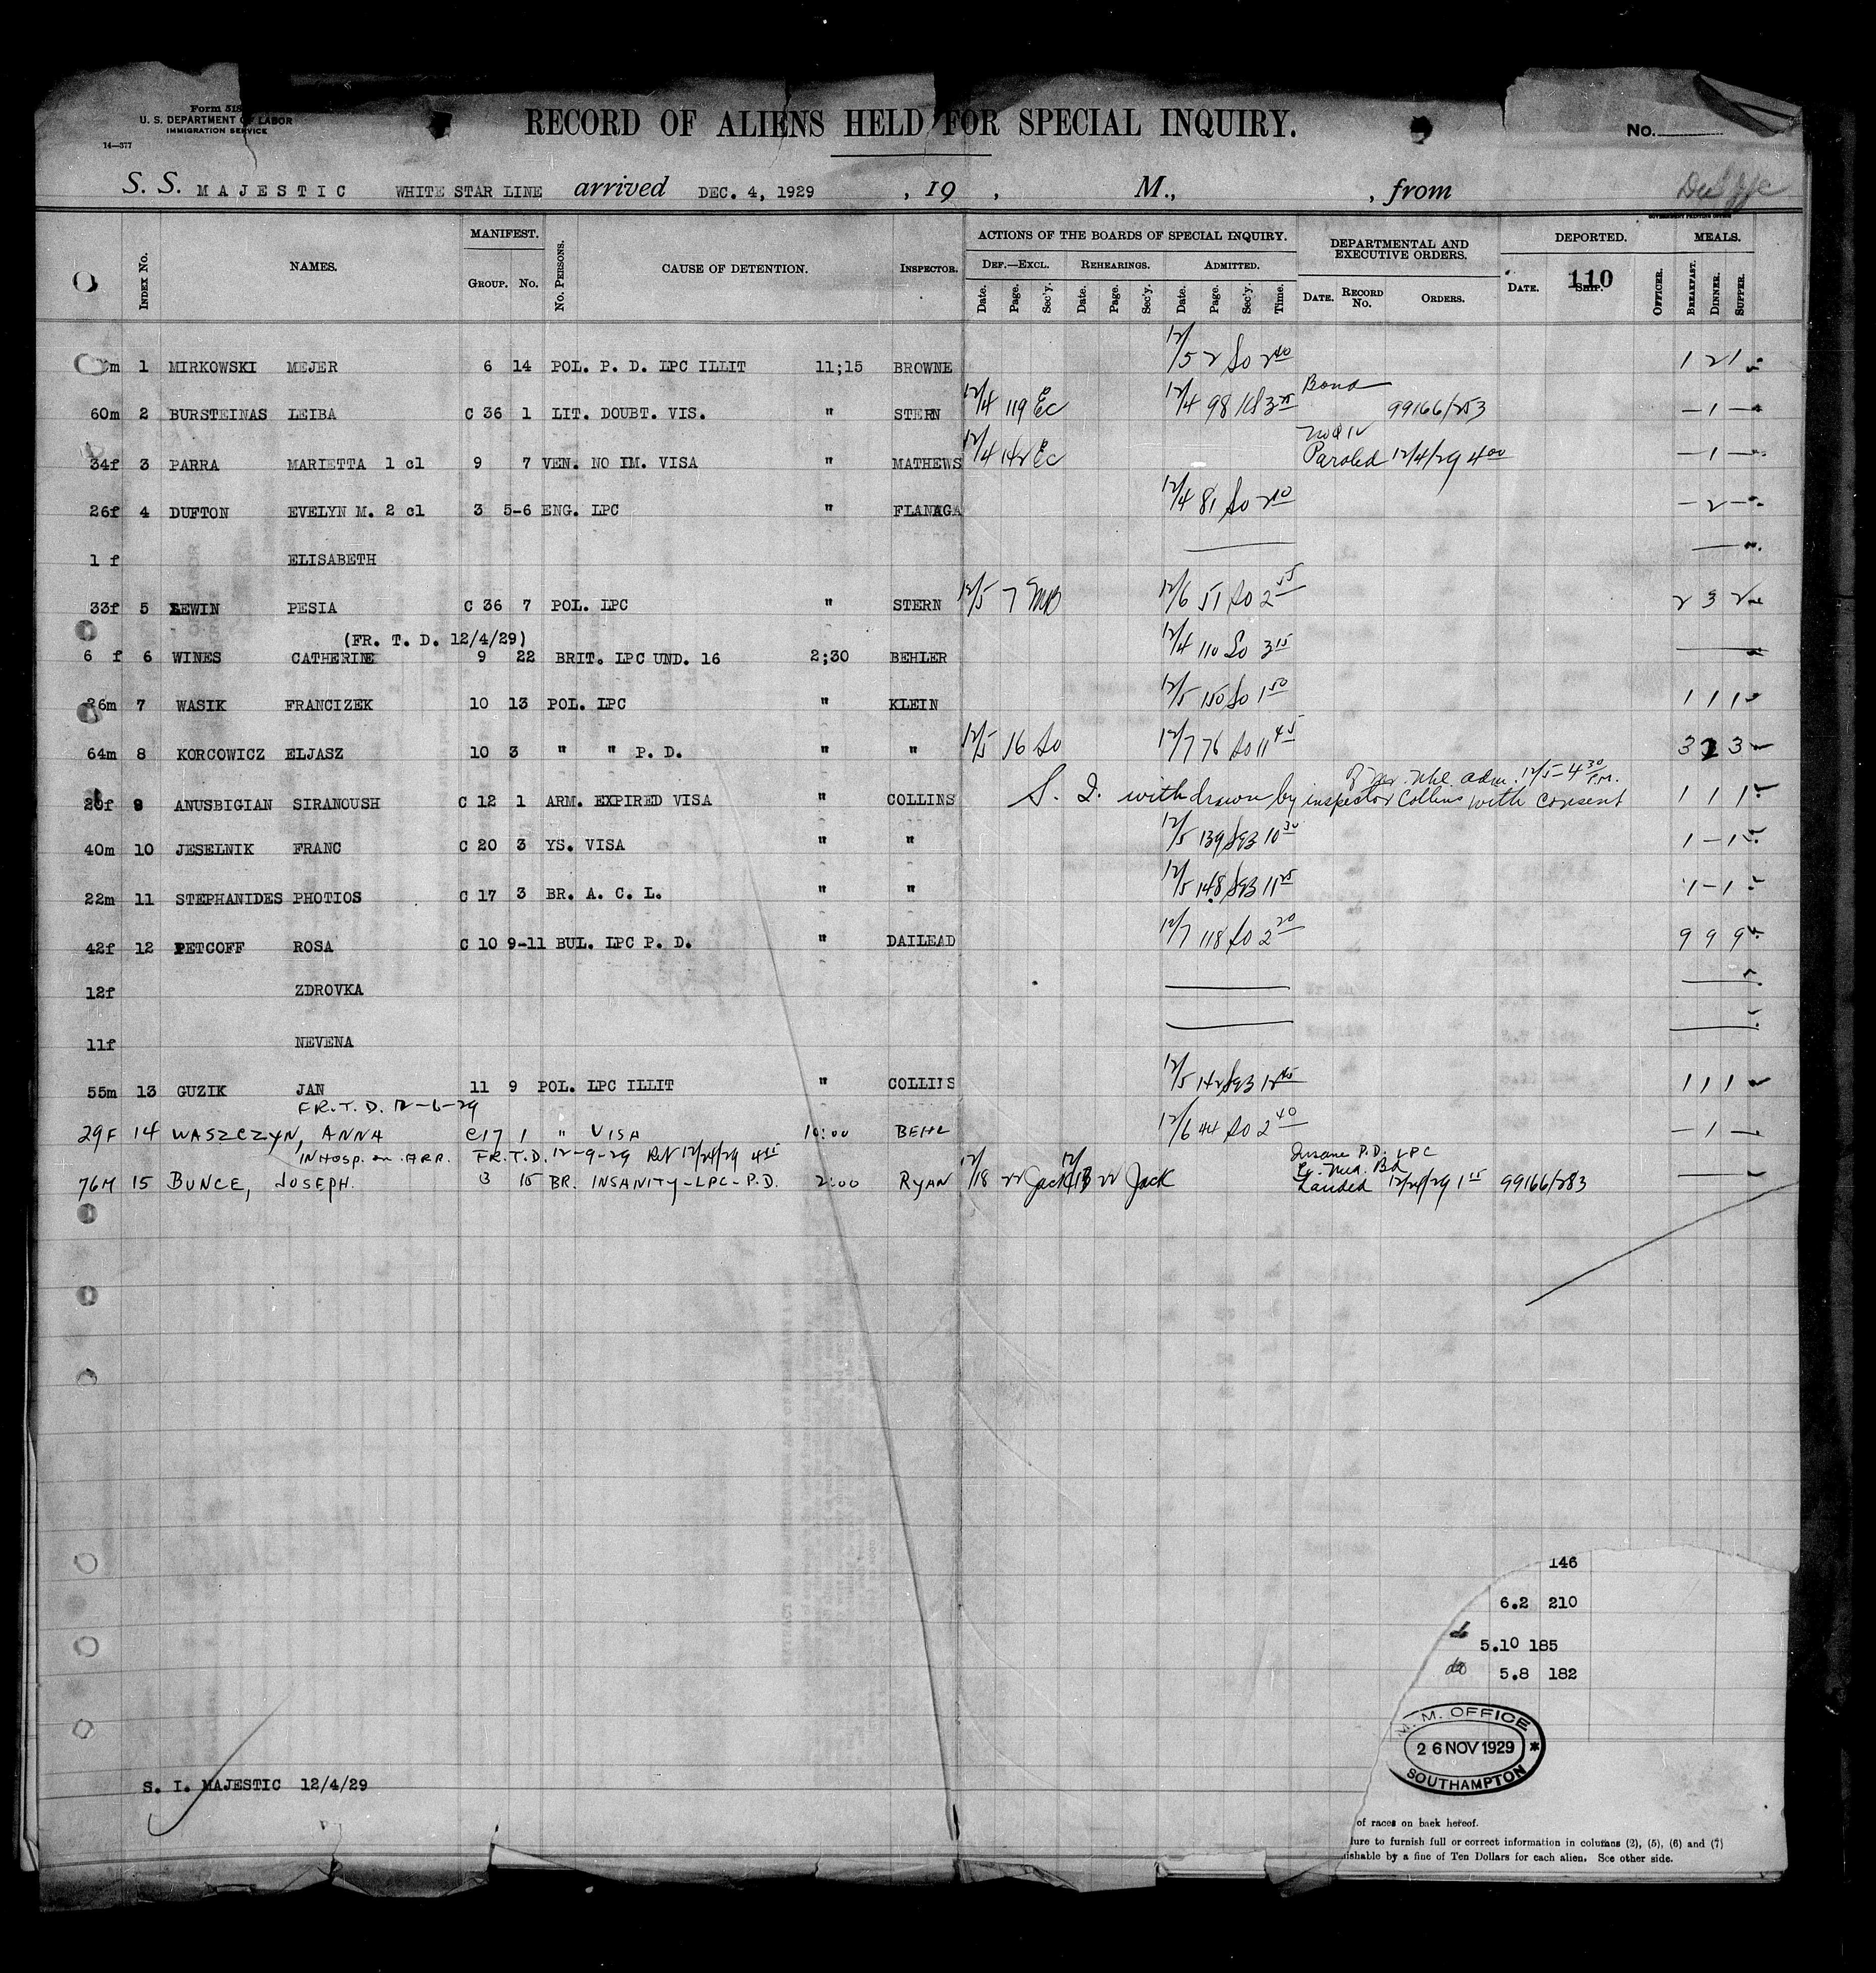 Form 518
U. S. DEPARTMENT OF LABOR
IMMIGRATION SERVICE
14—377
RECORD OF ALIENS HELD FOR SPECIAL INQUIRY.
No.
S. S. MAJESTIC WHITE STAR LINE arrived DEC. 4, 1929 , 19 , M., , from
GOVERNMENT PRINTING OFFICE
INDEX No. NAMES. MANIFEST. GROUP. No. No. PERSONS. CAUSE OF DETENTION. INSPECTOR. ACTIONS OF THE BOARDS OF SPECIAL INQUIRY. DEF.—EXCL. Date. Page. Sec'y. REHEARINGS. Date. Page. Sec'y. ADMITTED. Date. Page. Sec'y. Time. DEPARTMENTAL AND EXECUTIVE ORDERS. DATE. RECORD No. ORDERS. DEPORTED. DATE. SHIP. OFFICER. MEALS. BREAKFAST. DINNER. SUPPER.
110
m 1 MIRKOWSKI MEJER 6 14 POL. P. D. LPC ILLIT 11;15 BROWNE 12/5 2 So 2 40 1 2 1
60m 2 BURSTEINAS LEIBA C 36 1 LIT. DOUBT. VIS. " STERN 12/4 119 Ec 12/4 98 3 25 Bond 99166/253 — 1 —
34f 3 PARRA MARIETTA 1 cl 9 7 VEN. NO IM. VISA " MATHEWS 12/4 142 Ec Paroled 12/4/29 4 00 — 1 —
26f 4 DUFTON EVELYN M. 2 cl 3 5-6 ENG. LPC " FLANAGA 12/4 81 So 2 10 — 2 —
1 f ELISABETH
33f 5 LEWIN PESIA C 36 7 POL. LPC " STERN 12/5 7 MB 12/6 51 So 2 55 2 3 2
(FR. T. D. 12/4/29)
6 f 6 WINES CATHERINE 9 22 BRIT. LPC UND. 16 2;30 BEHLER 12/4 110 So 3 15
26m 7 WASIK FRANCIZEK 10 13 POL. LPC " KLEIN 12/5 150 So 1 50 1 1 1
64m 8 KORCOWICZ ELJASZ 10 3 " " P. D. " " 12/5 16 So 12/7 76 So 11 45 3 2 3
adm. 12/5-4 30 P.M.
20f 9 ANUSBIGIAN SIRANOUSH C 12 1 ARM. EXPIRED VISA " COLLINS S. I. withdrawn by inspector Collins with consent 1 1 1
40m 10 JESELNIK FRANC C 20 3 YS. VISA " " 12/5 139 10 30 1 — 1
22m 11 STEPHANIDES PHOTIOS C 17 3 BR. A. C. L. " " 12/5 148 11 25 1 — 1
42f 12 PETCOFF ROSA C 10 9-11 BUL. LPC P. D. " DAILEAD 12/7 118 So 2 20 9 9 9
12f ZDROVKA
11f NEVENA
55m 13 GUZIK JAN 11 9 POL. LPC ILLIT " COLLINS 12/5 142 12 45 1 1 1
FR. T. D. 12-6-29
29F 14 WASZCZYN, ANNA C17 1 " VISA 10:00 BEHL 12/6 44 So 2 40 — 1 —
IN HOSP. on ARR. FR. T. D. 12-9-29 Ret 12/24/29 4 35 Insane P.D. LPC
76M 15 BUNCE, JOSEPH. 3 15 BR. INSANITY-LPC-P.D. 2:00 RYAN 12/18 22 Jack 12/13 22 Jack Landed 12/24/29 1 15 99166/283
146
6.2 210
do 5.10 185
do 5.8 182
M. M. OFFICE
26 NOV 1929 *
SOUTHAMPTON
S. I. MAJESTIC 12/4/29
of races on back hereof.
lure to furnish full or correct information in columns (2), (5), (6) and (7)
ishable by a fine of Ten Dollars for each alien. See other side.